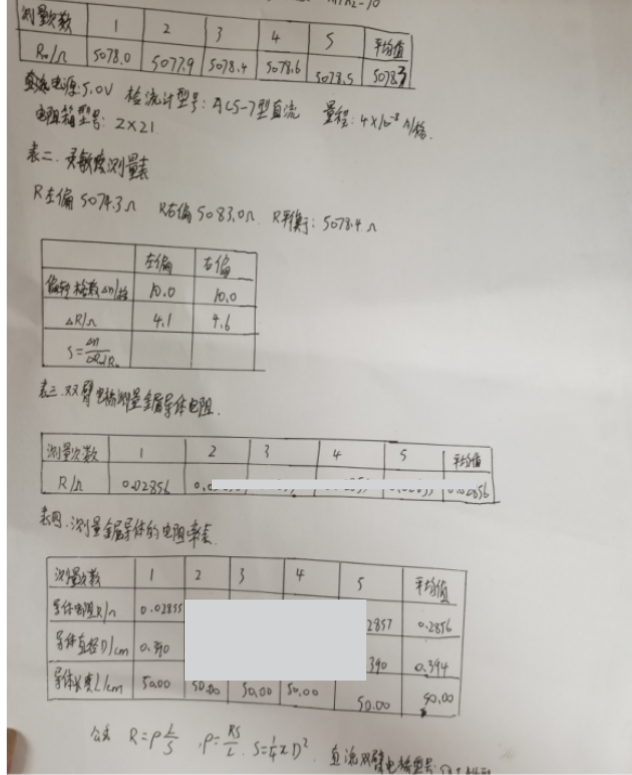 测量次数 1 2 3 4 5 平均值
R₀/Ω 5078.0 5077.9 5078.4 5078.6 5078.5 5078.3
直流电源:5.0V 检流计型号:AC5-7型直流 量程:4×10⁻⁸A/格.
电阻箱型号: ZX21
表二. 灵敏度测量表
R左偏 5074.3Ω R右偏 5083.0Ω R平衡: 5078.4Ω
左偏 右偏
偏转格数Δn/格 10.0 10.0
ΔR/Ω 4.1 4.6
S=Δn/ΔR₀/R₀
表三.双臂电桥测量金属导体电阻.
测量次数 1 2 3 4 5 平均值
R/Ω 0.02856 0.02856
表四.测量金属导体的电阻率表
测量次数 1 2 3 4 5 平均值
导体电阻R/Ω 0.02855 2857 0.2856
导体直径D/cm 0.390 390 0.394
导体长度L/cm 50.00 50.00 50.00 50.00 50.00 50.00
公式 R=ρL/S ,ρ=RS/L. S=¼πD² 直流双臂电桥型号: